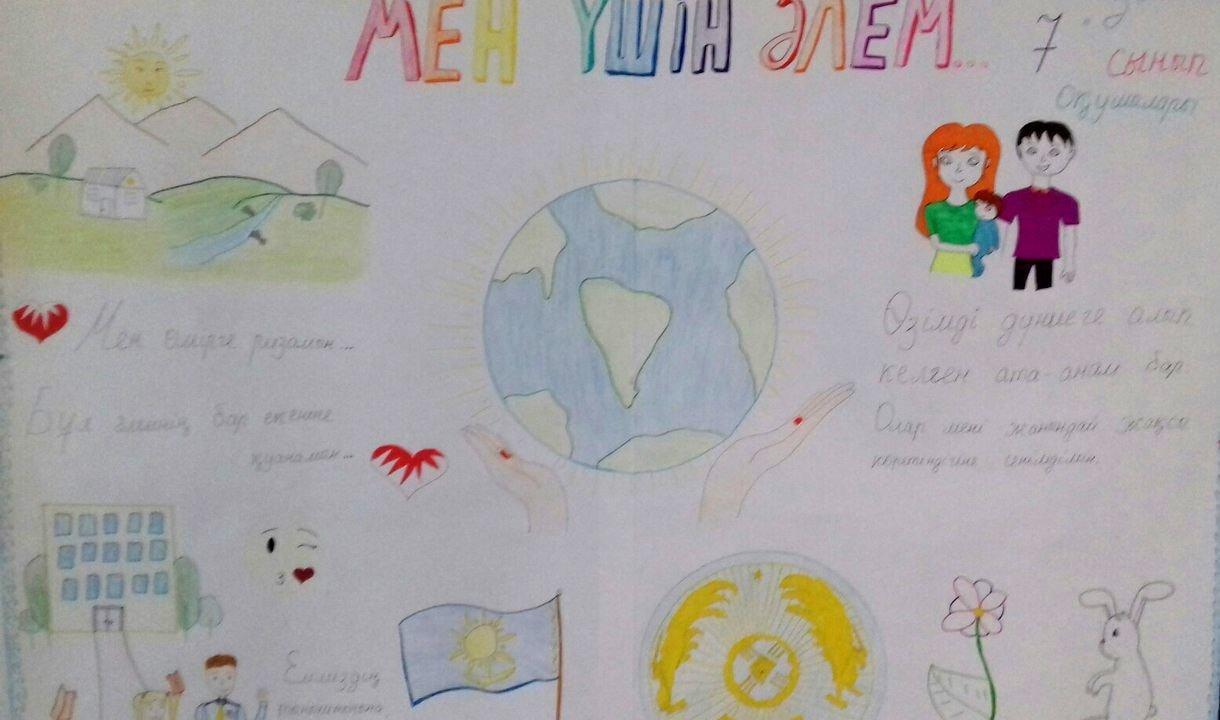 МЕН ҮШІН ӘЛЕМ...
7
сынып
Оқушылары
Мен өмірге ризамын...
Бұл әлемнің бар екеніне
қуанамын...
Өзімді дүниеге алып
келген ата-анам бар
Олар мені жанындай жақсы
көретіндігіне сенімдімін.
Еліміздің